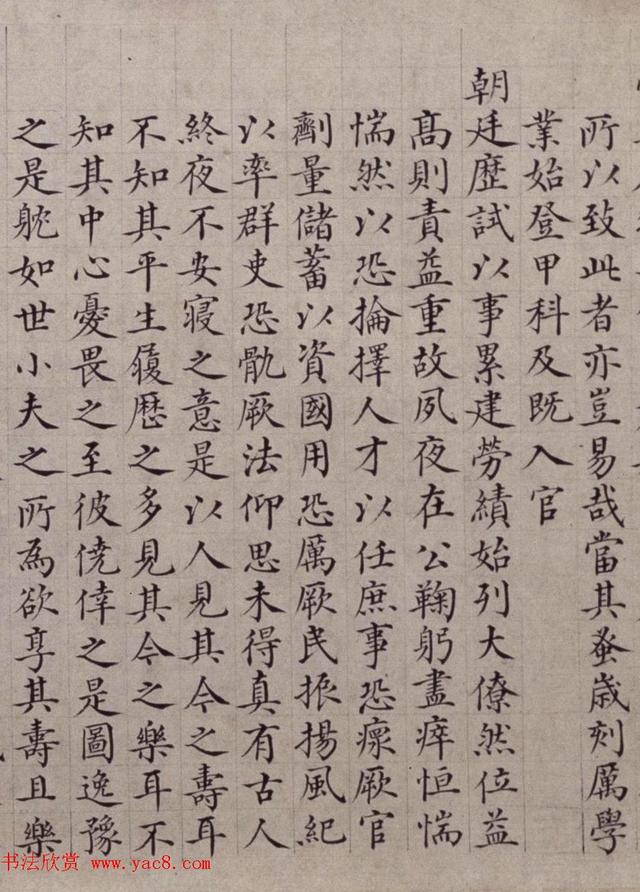 所以致此者亦豈易哉當其蚤歲刻厲學
業始登甲科及既入官
朝廷歷試以事累建勞績始列大僚然位益
髙則責益重故夙夜在公鞠躬盡瘁恒惴
惴然以恐掄擇人才以任庶事恐瘝厥官
劑量儲蓄以資國用恐厲厥民振揚風紀
以率群吏恐骫厥法仰思未得真有古人
終夜不安寝之意是以人見其今之壽耳
不知其平生履歷之多見其今之樂耳不
知其中心憂畏之至彼僥倖之是圖逸豫
之是躭如世小夫之所為欲享其壽且樂
书法欣赏 www.yac8.com